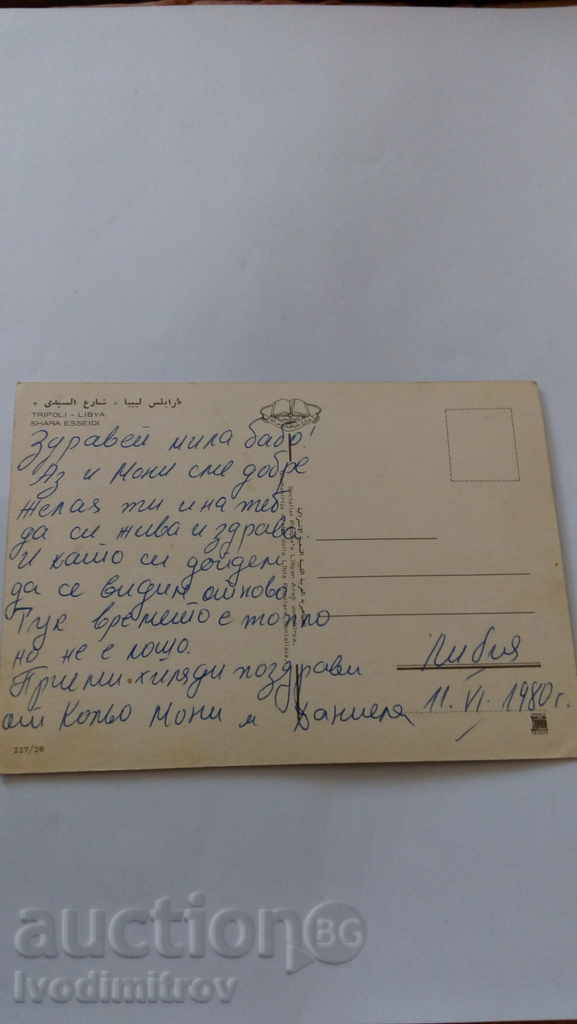 طرابلس ليبيا - شارع السيدى •
TRIPOLI - LIBYA
SHARA ESSEIDI
Здравей мила бабо!
Аз и Мони сме добре
желая ти и на теб
да си жива и здрава.
И като си дойдем
да се видим отнова
Тук времето е топло
но не е лошо.
Приеми хиляди поздрави
от Кольо Мони и Даниела
Либия
11. VI. 1980 г.
117/28
auctionBG
Ivodimitrov